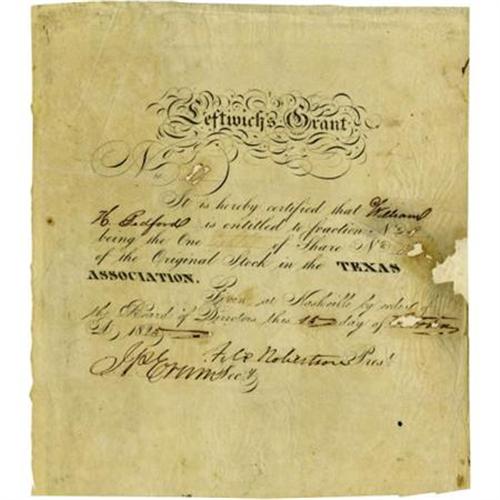 Leftwich's Grant
No
It is hereby certified that William
H. Pedford is entitled to fraction No
being the One of Share No
of the Original Stock in the TEXAS
ASSOCIATION.
Given at Nashville by order of
the Board of Directors this 15 day of
AD 1825
Felix Robertson Prest
J P Erwin Secy